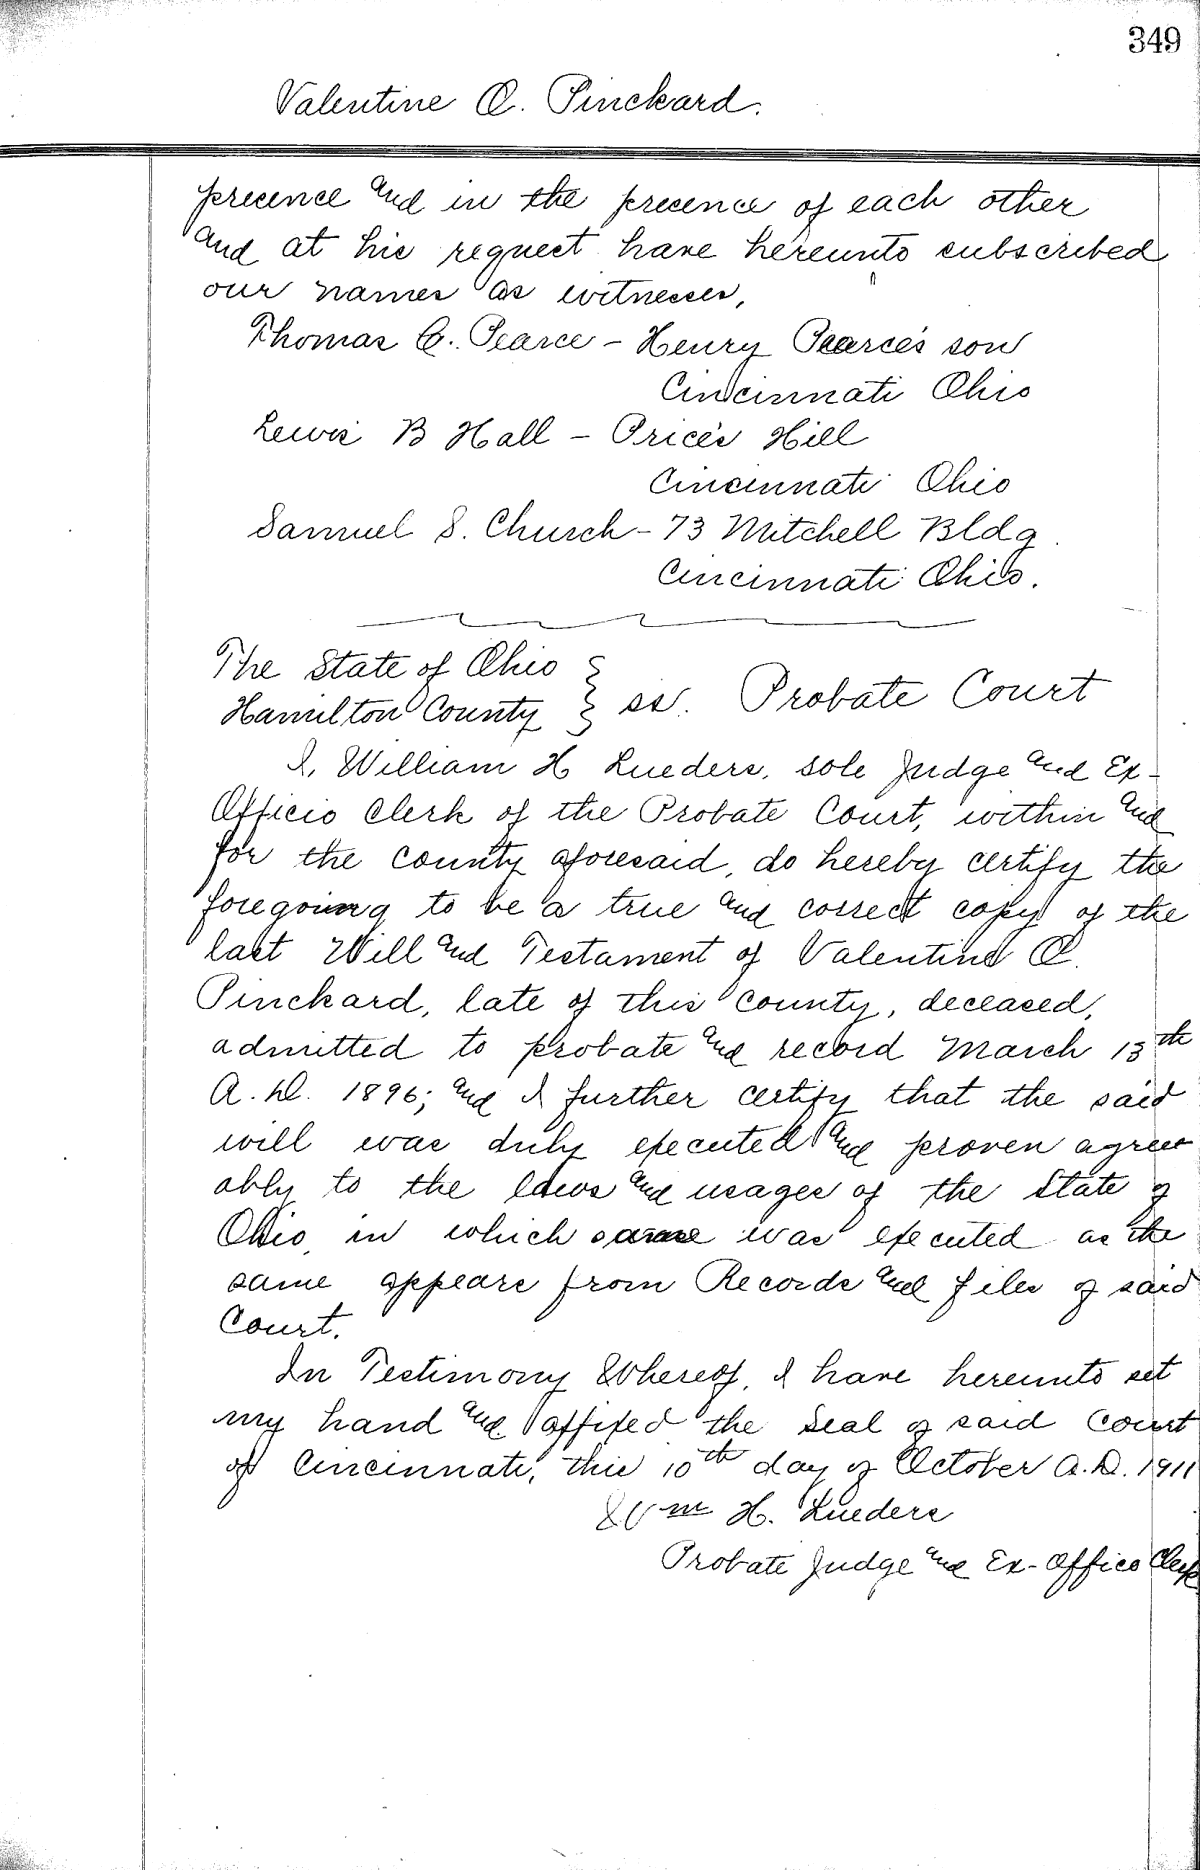 349
Valentine C. Pinckard.
presence and in the presence of each other
and at his request have hereunto subscribed
our names as witnesses,
Thomas C. Pearce - Henry Pearce's son
Cincinnati Ohio
Lewis B Hall - Price's Hill
Cincinnati Ohio
Samuel S. Church - 73 Mitchell Bldg.
Cincinnati Ohio.
The State of Ohio
Hamilton County } ss. Probate Court
I, William H Lueders, sole Judge and Ex-
Officio Clerk of the Probate Court, within and
for the county aforesaid, do hereby certify the
foregoing to be a true and correct copy of the
last Will and Testament of Valentine C.
Pinckard, late of this county, deceased,
admitted to probate and record March 13th
A.D. 1896; and I further certify that the said
will was duly executed and proven agree
ably to the laws and usages of the State of
Ohio, in which same was executed as the
same appears from Records and files of said
Court.
In Testimony Whereof, I have hereunto set
my hand and affixed the Seal of said Court
of Cincinnati, this 10th day of October A.D. 1911
Wm H. Lueders
Probate Judge and Ex-Officio Clerk